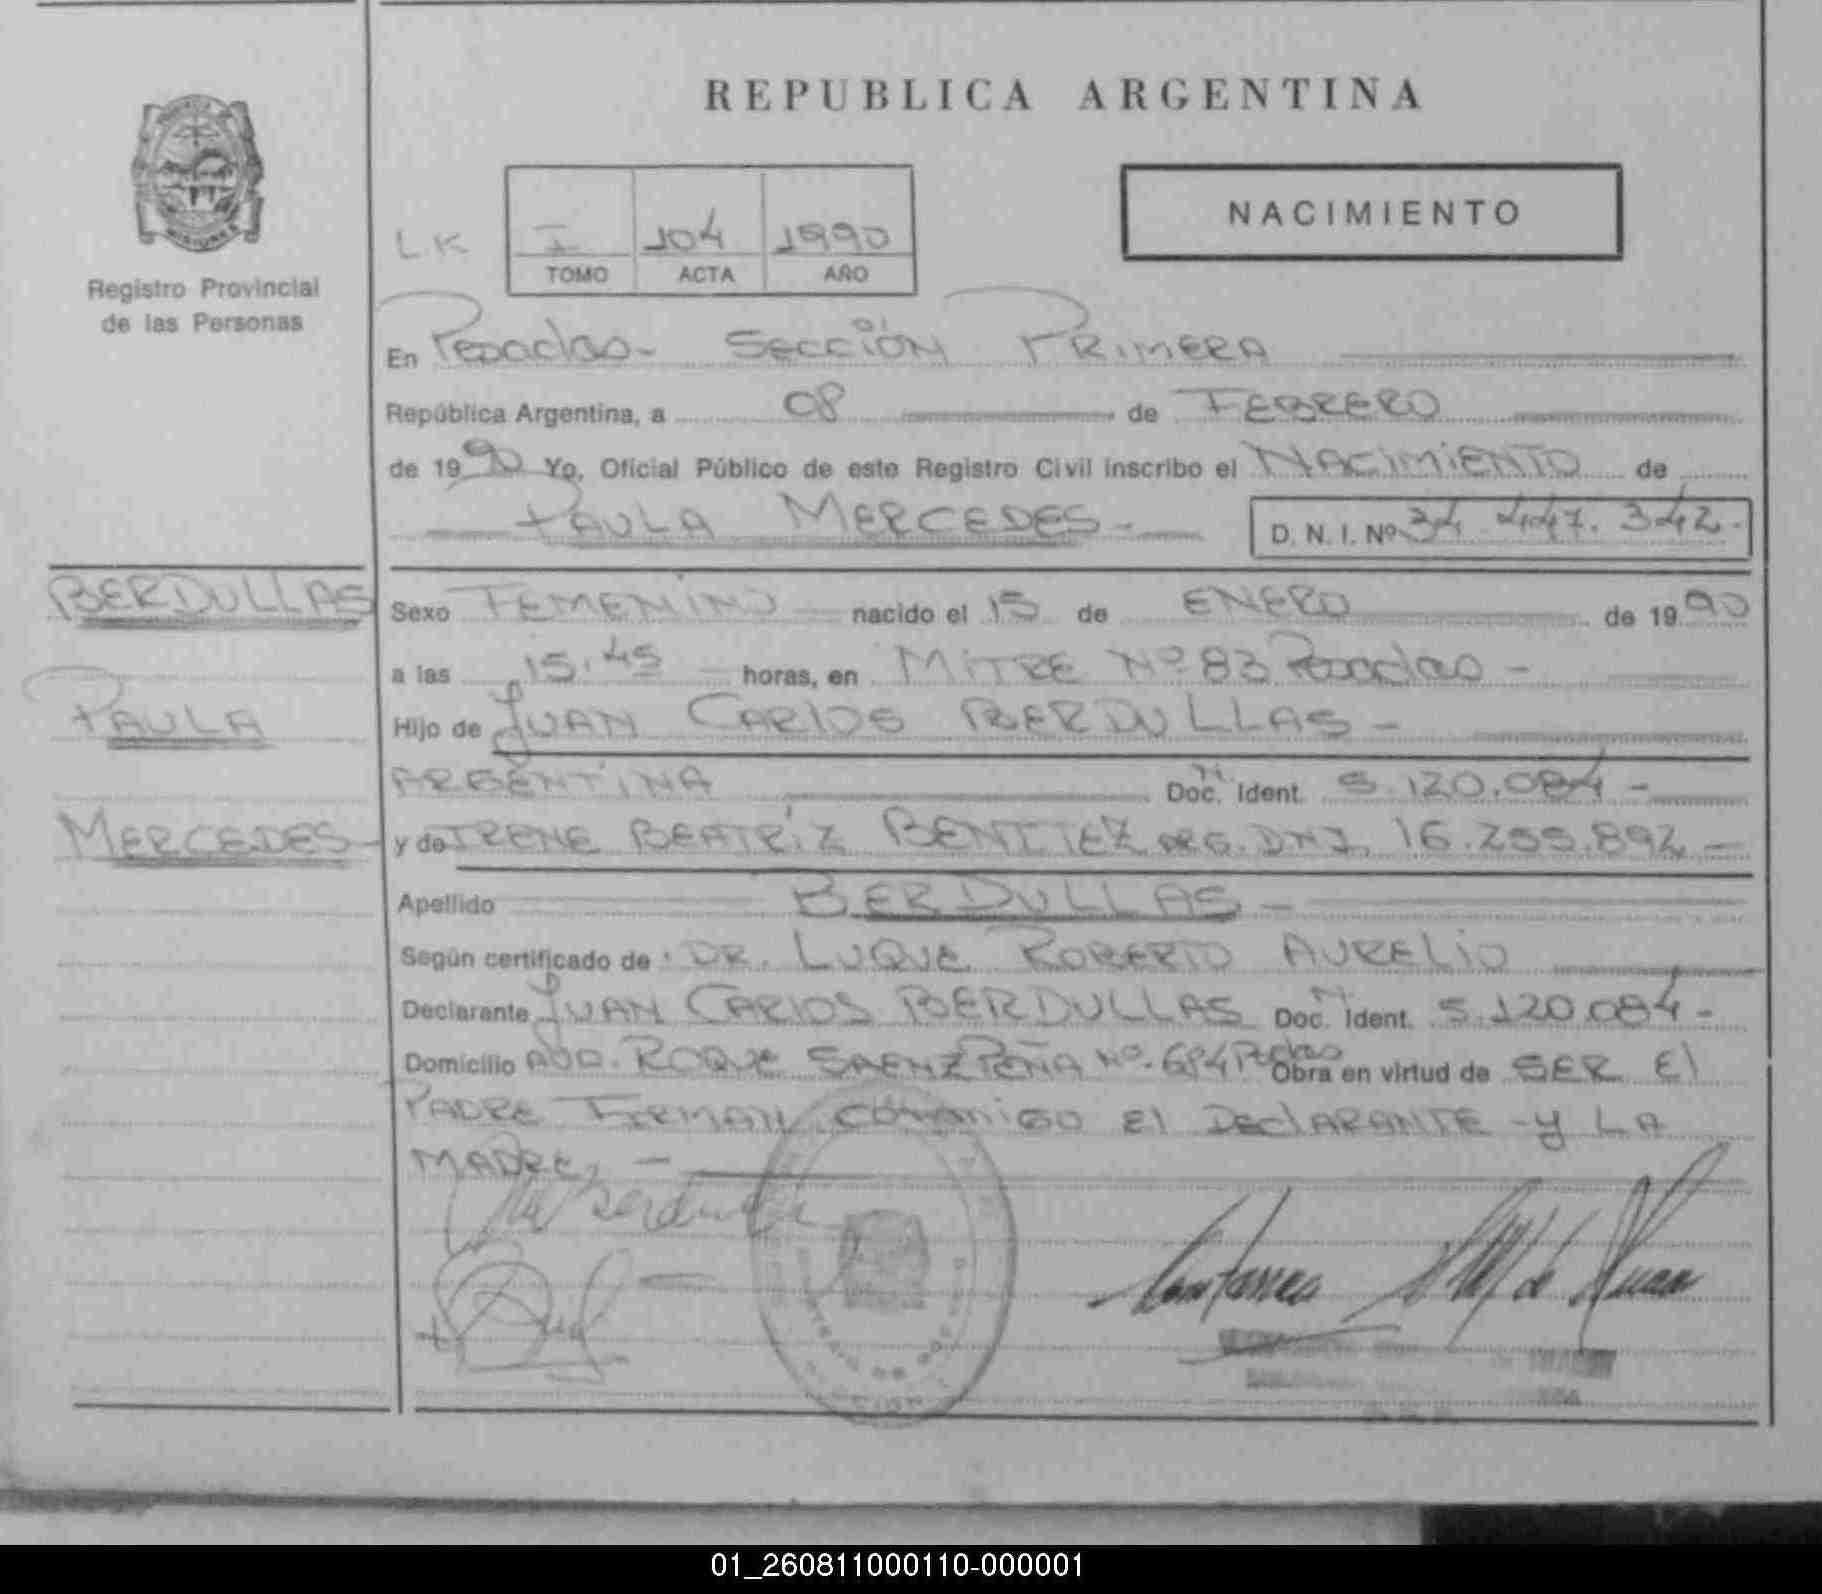 REPUBLICA ARGENTINA
NACIMIENTO
MISIONES
Registro Provincial
de las Personas
LK I 104 1990
TOMO ACTA AÑO
En Posadas - SECCIÓN PRIMERA
República Argentina, a 08 de FEBRERO
de 1990 Yo, Oficial Público de este Registro Civil inscribo el NACIMIENTO de
PAULA MERCEDES -
D. N. I. Nº 34.447.342.-
BERDULLAS
PAULA
MERCEDES -
Sexo FEMENINO nacido el 15 de ENERO de 1990
a las 15.45 horas, en MITRE Nº 83 Posadas -
Hijo de JUAN CARLOS BERDULLAS -
ARGENTINA Doc. Ident. M 5.120.084 -
y de IRENE BEATRIZ BENITEZ ARG. DNI. 16.255.892 -
Apellido BERDULLAS -
Según certificado de DR. LUQUE ROBERTO AURELIO
Declarante JUAN CARLOS BERDULLAS Doc. Ident. M 5.120.084 -
Domicilio AVD. ROQUE SAENZ PEÑA Nº. 684 Pdas Obra en virtud de SER El
PADRE FIRMAN CONMIGO El DEClARANTE - y LA
MADRE, -
01_260811000110-000001